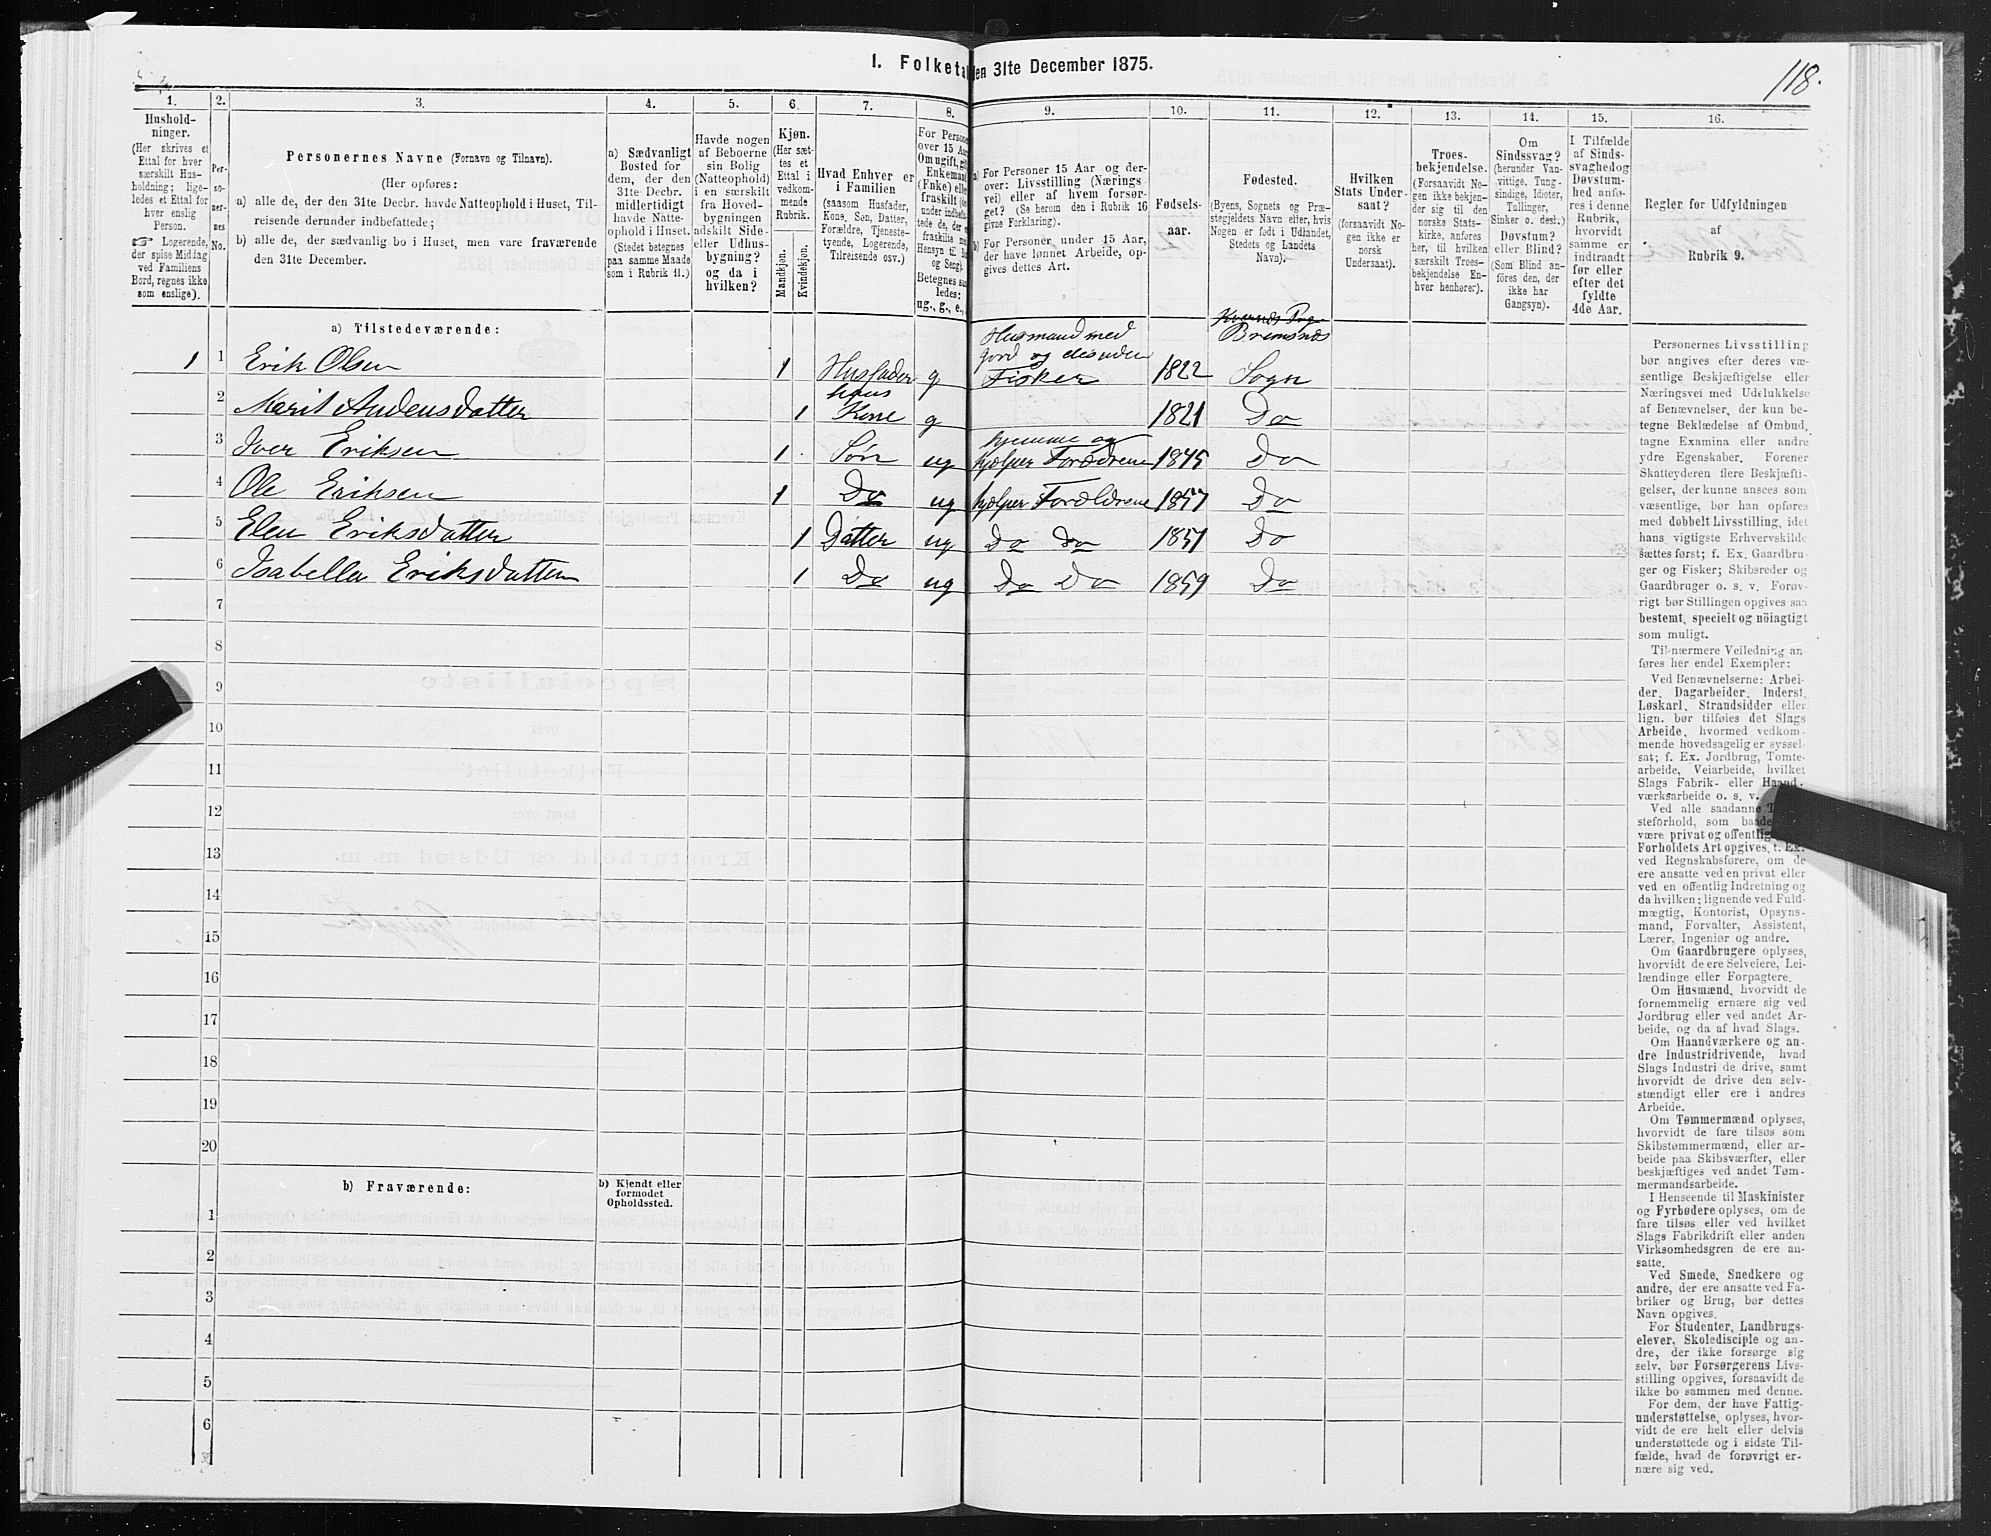 1. Folketal den 31te December 1875.
118.
1.
2.
3.
4.
5.
6.
7.
8.
9.
10.
11.
12.
13.
14.
15.
16.
Hushold-
ninger.
(Her skrives et
Ettal for hver
særskilt Hus-
holdning; lige-
ledes et Ettal for
hver enslig
Person.
☞ Logerende,
der spise Middag
ved Familiens
Bord, regnes ikke
som enslige).
Per-
so-
ner-
nes
No.
Personernes Navne (Fornavn og Tilnavn).
(Her opføres:
a) alle de, der den 31te Decbr. havde Natteophold i Huset, Til-
reisende derunder indbefattede;
b) alle de, der sædvanlig bo i Huset, men vare fraværende
den 31te December.
a) Sædvanligt
Bosted for
dem, der den
31te Decbr.
midlertidigt
havde Natte-
ophold i Huset.
(Stedet betegnes
paa samme Maade
som i Rubrik 11.)
Havde nogen
af Beboerne
sin Bolig
(Natteophold)
i en særskilt
fra Hoved-
bygningen
adskilt Side-
eller Udhus-
bygning?
og da i
hvilken?
Kjøn.
(Her sæt-
tes et
Ettal i
vedkom-
mende
Rubrik.
Mandkjøn.
Kvindekjøn.
Hvad Enhver er
i Familien
(saasom Husfader,
Kone, Søn, Datter,
Forældre, Tjeneste-
tyende, Logerende,
Tilreisende osv.)
For Personer
over 15 Aar:
Om ugift, gift,
Enkemand
(Enke) eller
fraskilt
Betegnes saa-
ledes:
ug., g., e.,
a) For Personer 15 Aar og der-
over: Livsstilling (Nærings
vei) eller af hvem forsør-
get? (Se herom den i Rubrik 16
givne Forklaring).
b) For Personer under 15 Aar,
der have lønnet Arbeide, op-
gives dettes Art.
Fødsels-
aar.
Fødested.
(Byens, Sognets og Præ-
stegjeldets Navn eller, hvis
Nogen er født i Udlandet,
Stedets og Landets
Navn).
Hvilken
Stats Under-
saat?
(forsaavidt No-
gen ikke er
norsk
Undersaat).
Troes-
bekjendelse.
(Forsaavidt No-
gen ikke bekjen-
der sig til den
norske Stats-
kirke, anføres
her, til hvilken
særskilt Troes-
bekjendelse En-
hver henhører).
Om
Sindssvag?
(herunder Van-
vittige, Tung-
sindige, Idioter,
Tullinger,
Sinker o. desl.)
Døvstum?
eller Blind?
(Som Blind an-
føres den, der
ikke har
Gangsyn).
I Tilfælde
af Sinds-
svaghed og
Døvstum-
hed anfø-
res i denne
Rubrik,
hvorvidt
samme er
indtraadt
før eller
efter det
fyldte
4de Aar.
Regler for Udfyldningen
af
Rubrik 9.
a) Tilstedeværende:
1 1 Erik Olsen 1 Husfader g Husmand med
jord og desuden
Fisker 1822 Bremsnæs
Sogn
2 Marit Andersdatter 1 hans
Kone g 1821 Do
3 Iver Eriksen 1 Søn ug hjemme og
hjelper Forældrene 1845 Do
4 Ole Eriksen 1 Do ug hjelper Forældrene 1857 Do
5 Elen Eriksdatter 1 Datter ug Do Do 1851 Do
6 Isabella Eriksdatter 1 Do ug Do Do 1859 Do
7
8
9
10
11
12
13
14
15
16
17
18
19
20
b) Fraværende:
b) Kjendt eller
formodet
Opholdssted.
1
2
3
4
5
6
Personernes Livsstilling
bør angives efter deres væ-
sentlige Beskjæftigelse eller
Næringsvei med Udelukkelse
af Benævnelser, der kun be-
tegne Beklædelse af Ombud,
tagne Examina eller andre
ydre Egenskaber. Forener
Skatteyderen flere Beskjæfti-
gelser, der kunne ansees som
væsentlige, bør han opføres
med dobbelt Livsstilling, idet
hans vigtigste Erhvervskilde
sættes først; f. Ex. Gaardbru-
ger og Fisker; Skibsreder og
Gaardbruger o. s. v. Forøv-
rigt bør Stillingen opgives saa
bestemt, specielt og nöiagtigt
som muligt.
Til nærmere Veiledning an-
føres her endel Exempler:
Ved Benævnelserne: Arbei-
der, Dagarbeider, Inderst,
Løskarl, Strandsidder eller
lign. bør tilføies det Slags
Arbeide, hvormed vedkom-
mende hovedsagelig er syssel-
sat; f. Ex. Jordbrug, Tomte-
arbeide, Veiarbeide, hvilket
Slags Fabrik- eller Haand-
værksarbeide o. s. v.
Ved alle saadanne
steforhold, som baade
være privat og offentlig,
Forholdets Art opgives, t. Ex.
ved Regnskabsførere, om de
ere ansatte ved en privat eller
ved en offentlig Indretning og
da hvilken; lignende ved Fuld-
mægtig, Kontorist, Opsyns-
mand, Forvalter, Assistent,
Lærer, Ingeniør og andre.
Om Gaardbrugere oplyses,
hvorvidt de ere Selveiere, Lei-
lændinge eller Forpagtere.
Om Husmænd, hvorvidt de
fornemmelig ernære sig ved
Jordbrug eller ved andet Ar-
beide, og da af hvad Slags.
Om Haandværkere og an-
dre Industridrivende, hvad
Slags Industri de drive, samt
hvorvidt de drive den selv-
stændigt eller ere i andres
Arbeide.
Om Tømmermænd oplyses,
hvorvidt de fare tilsøs som
Skibstømmermænd, eller ar-
beide paa Skibsværfter, eller
beskjæftiges ved andet Tøm-
mermandsarbeide.
I Henseende til Maskinister
og Fyrbødere oplyses, om de
fare tilsøs eller ved hvilket
Slags Fabrikdrift eller anden
Virksomhedsgren de ere an-
satte.
Ved Smede, Snedkere og
andre, der ere ansatte ved Fa-
briker og Brug, bør dettes
Navn opgives.
For Studenter, Landbrugs-
elever, Skoledisciple og an-
dre, der ikke forsørge sig
selv, bør Forsørgerens Livs-
stilling opgives, forsaavidt de
ikke bo sammen med denne.
For dem, der have Fattig-
understøttelse, oplyses, hvor-
vidt de ere helt eller delvis
understøttede og i sidste Til-
fælde, hvad de forøvrigt er-
nære sig ved.